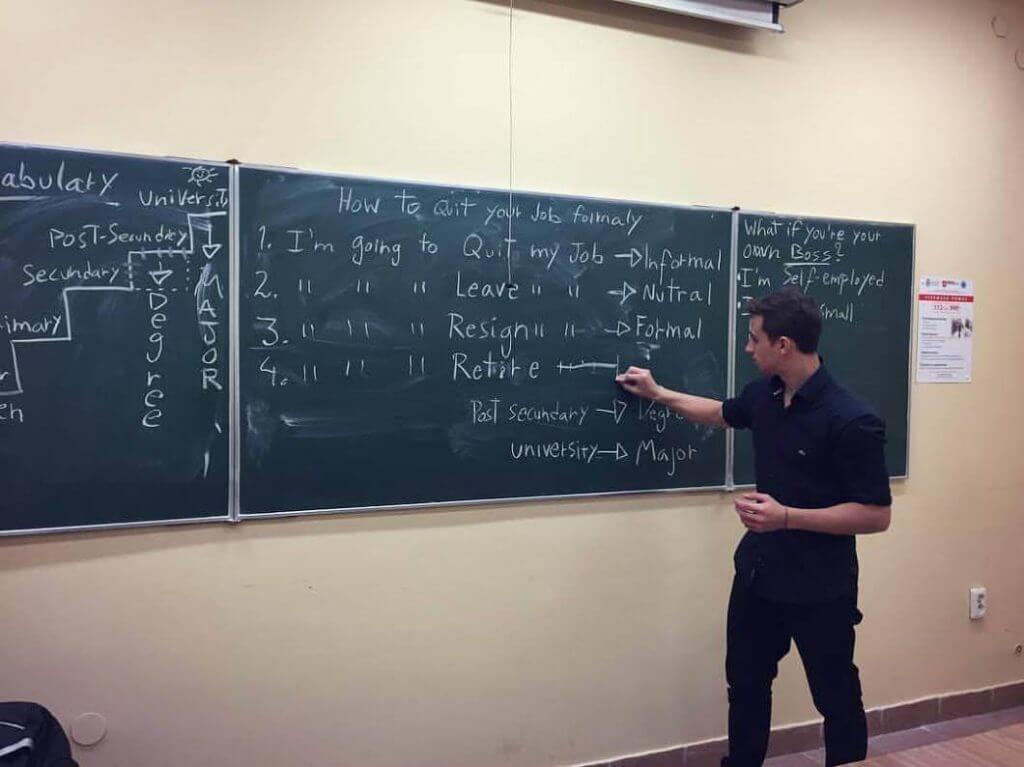 abulary
University
Post-Secundry
Secundary
imary
en
Degree
MAJOR
How to Quit your Job formaly
1. I'm going to Quit my Job → Informal
2. " " " Leave " " → Nutral
3. " " " Resign " " → Formal
4. " " " Retire
Post secundary → Degre
university → Major
What if you're your
own Boss?
I'm Self-employed
small
112